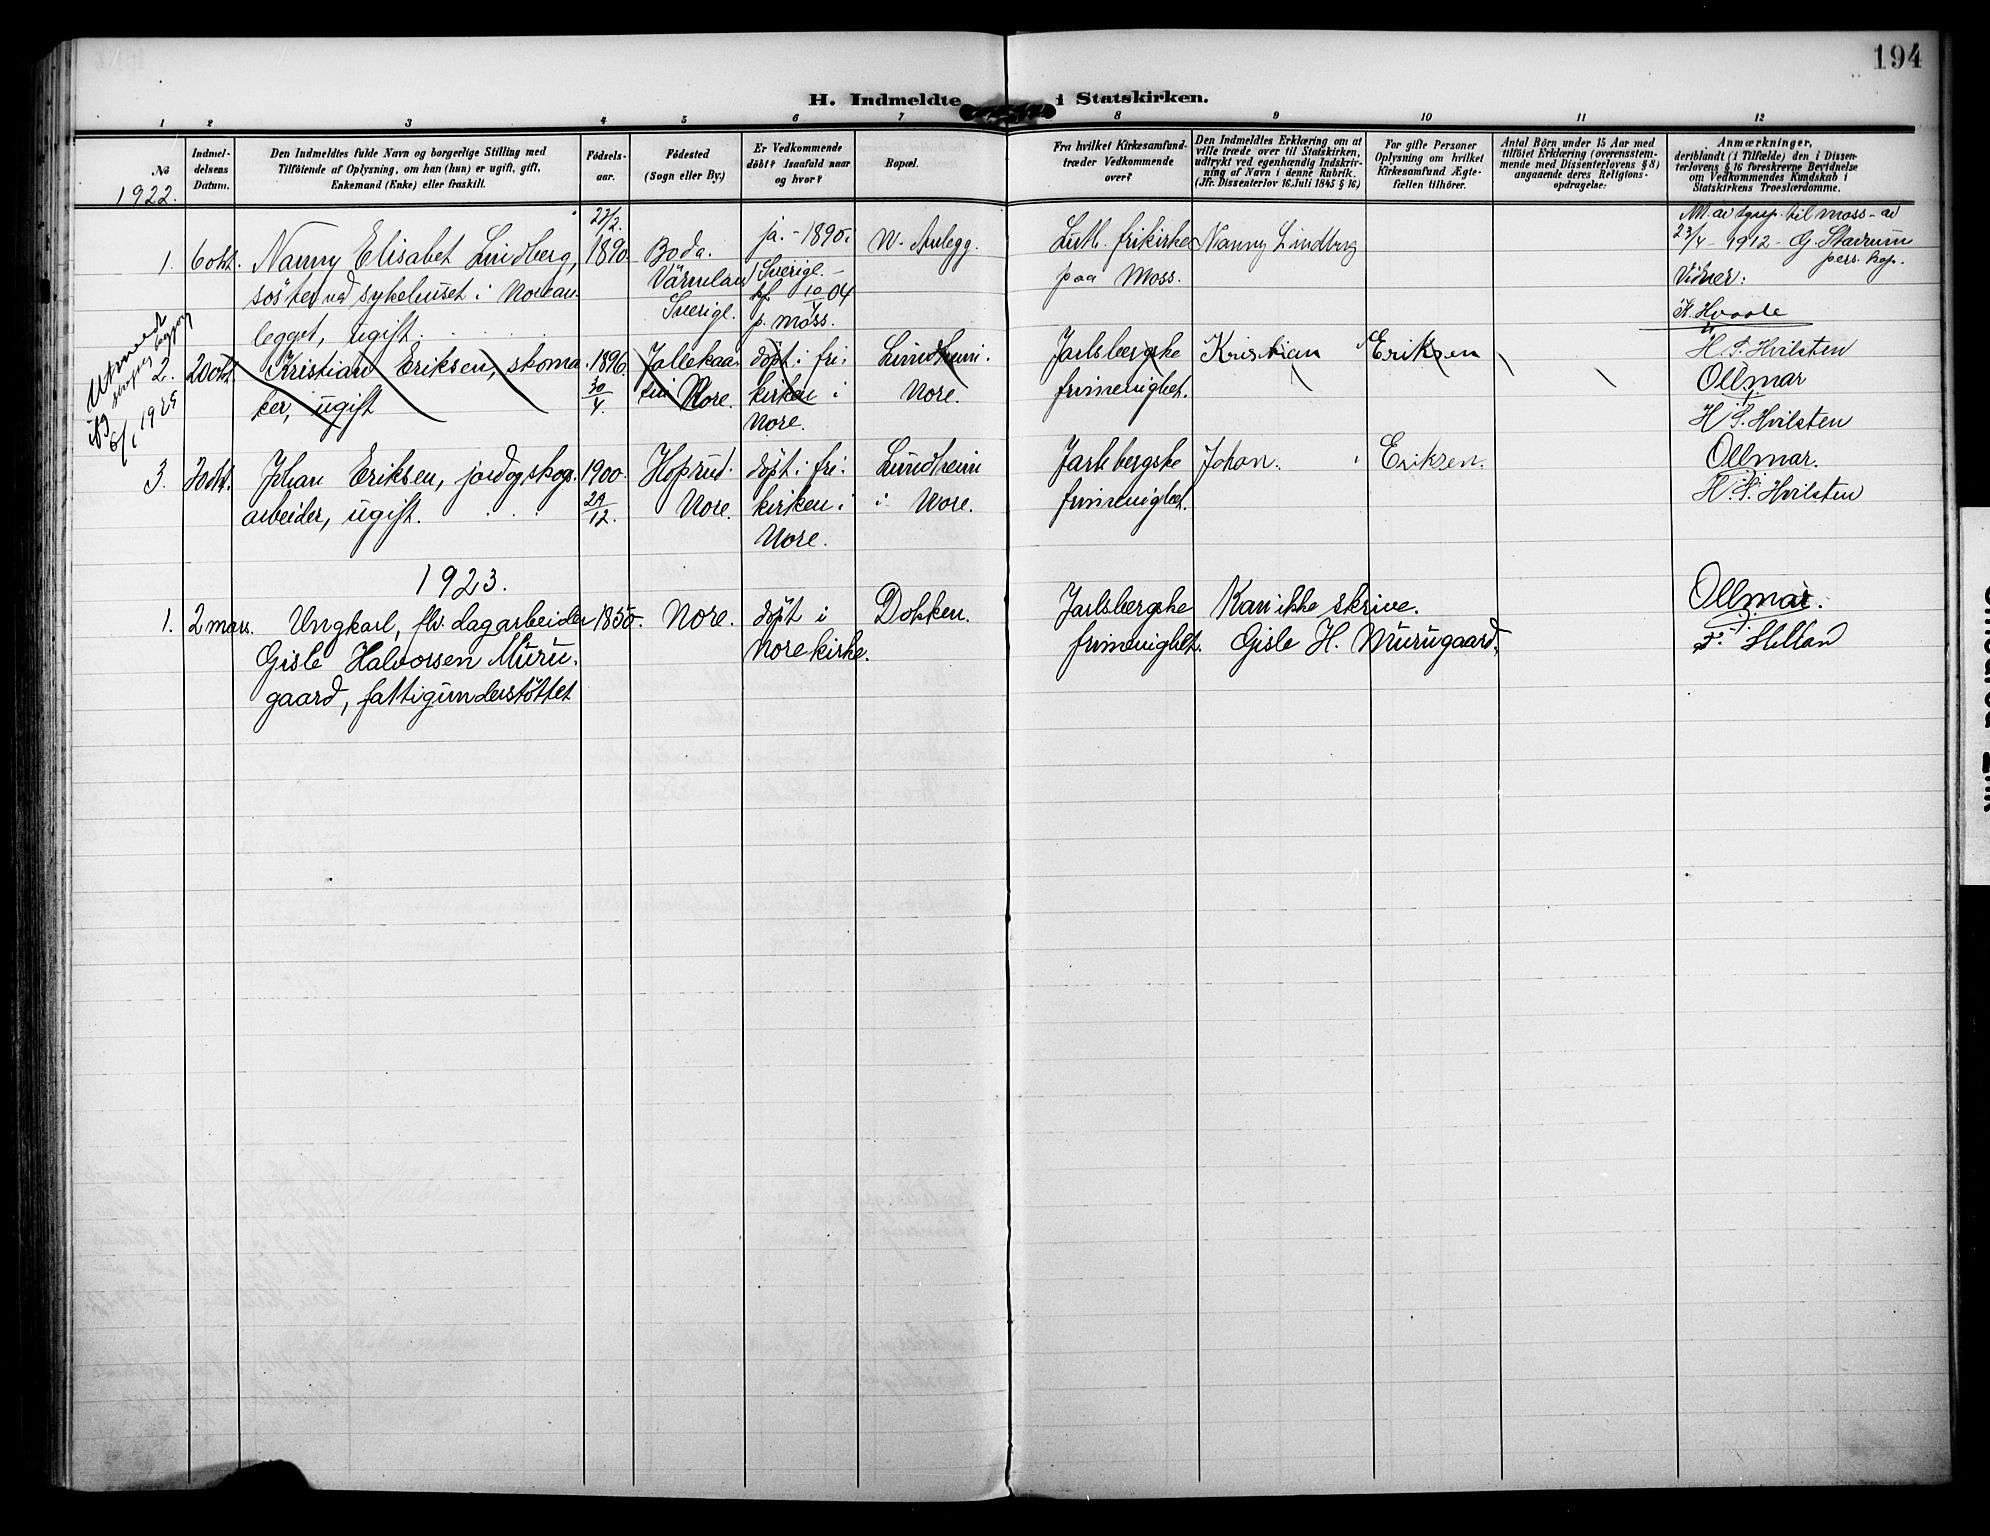 194
H. Indmeldte i Statskirken.
1 2 3 4 5 6 7 8 9 10 11 12
No
1922.
Indmel-
delsens
Datum.
Den Indmeldtes fulde Navn og borgerlige Stilling med
Tilföiende af Oplysning, om han (hun) er ugift, gift,
Enkemand (Enke) eller fraskilt.
Födsels-
aar.
Födested
(Sogn eller By.)
Er Vedkommende
döbt? Isaafald naar
og hvor?
Bopæl.
Fra hvilket Kirkesamfund-
træder Vedkommende
over?
Den Indmeldtes Erklæring om at
ville træde over til Statskirken,
udtrykt ved egenhændig Indskriv-
ning af Navn i denne Rubrik.
(Jfr. Dissenterlov 16. Juli 1845 § 16)
For gifte Personer
Oplysning om hvilket
Kirkesamfund Ægte-
fællen tilhörer.
Antal Börn under 15 Aar med
tilföiet Erklæring (overensstem-
mende med Dissenterlovens § 8)
angaaende deres Religions-
opdragelse:
Anmærkninger,
deriblandt (i Tilfælde) den i Dissen-
terlovens § 16 foreskrevne Bevidnelse
om Vedkommendes Kundskab i
Statskirkens Troeslærdomme.
1. 6 okt. Nanny Elisabet Lindberg,
söster ved sykehuset i Norean-
legget, ugift.
22/2.
1890
Boda.
Värmland
Sverige.
ja. - 1890 i
Sverige. -
kf. 10/4 04
p. Moss.
N. Anlegg.
Luth. frikirke
paa Moss.
Nanny Lindberg
til Moss - av
23/4 - 1912 - G.
pers. kap.
Vidner:
Utmeldt
6/1 1925
2. 20 okt. Kristian Eriksen, skoma-
ker, ugift
1896.
30/4.
Nore.
döpt i fri-
kirken i
Nore.
Lundheim.
Nore.
Jarlsbergske
frimenighet.
Kristian Eriksen
H. P. Hvilsten
Ollmar
H. P. Hvilsten
3. 20 okt. Johan Eriksen, jord og skogs-
arbeider, ugift.
1900.
29/12.
Hoprud.
Nore.
döpt i fri-
kirken i
Nore.
Lundheim
i Nore.
Jarlsbergske
frimenighet.
Johan. Eriksen.
Ollmar.
H. P. Hvilsten
1923.
1. 2 mars. Ungkarl, flv. dagarbeider
Gisle Halvorsen Muru-
gaard, fattigunderstöttet
1850.
Nore.
döpt i
Nore kirke.
Dokken.
Jarlsbergske
frimenighet.
Kan ikke skrive.
Gisle H. Murugaard.
Ollmar.